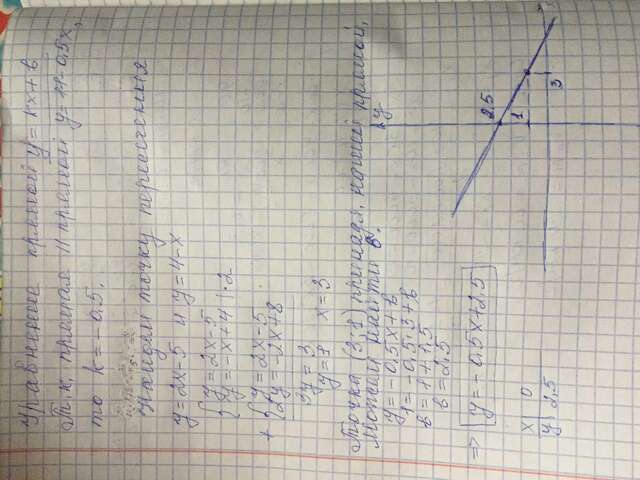 Уравнение прямой y = kx + b
Т.к. прямая || прямой y = 11-0,5x,
то k = -0,5.
Найдём точку пересечения
y = 2x-5 и y = 4-x
{ y = 2x-5
{ y = -x+4 | ·2
+ { y = 2x-5
{ 2y = -2x+8
3y = 3
y = 1 x = 3
Точка (3;1) принадл. нашей прямой.
Можем найти b.
y = -0,5x+b
1 = -0,5·3+b
b = 1+1,5
b = 2,5
=> y = -0,5x+2,5
x 0
y 2,5
y
2,5
1
3